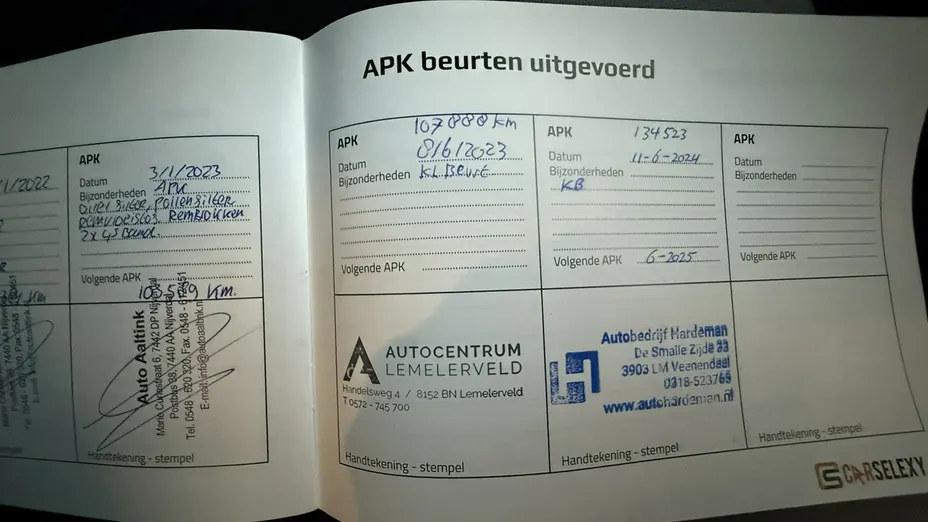 1/2022
APK
Datum 3/1/2023
Bijzonderheden APK
pollenfilter
Remblokken
Volgende APK
Km.
Auto Aaltink
Marie Curiestraat 6, 7442 DP Nijverdal
Postbus 38, 7440 AA Nijverdal
Tel. 0548 - 620 320, Fax. 0548 -
E-mail: info@autoaaltink.nl
Handtekening - stempel
APK beurten uitgevoerd
APK 107888 km
Datum 8/6/2023
Bijzonderheden KL. Beurt
Volgende APK
AUTOCENTRUM
LEMELERVELD
Handelsweg 4 / 8152 BN Lemelerveld
T 0572 - 745 700
Handtekening - stempel
APK 134523
Datum 11-6-2024
Bijzonderheden
KB
Volgende APK 6-2025
Autobedrijf Hardeman
De Smalle Zijde 33
3903 LM Veenendaal
0318-523765
www.autohardeman.nl
Handtekening - stempel
APK
Datum
Bijzonderheden
Volgende APK
Handtekening - stempel
CARSELEXY